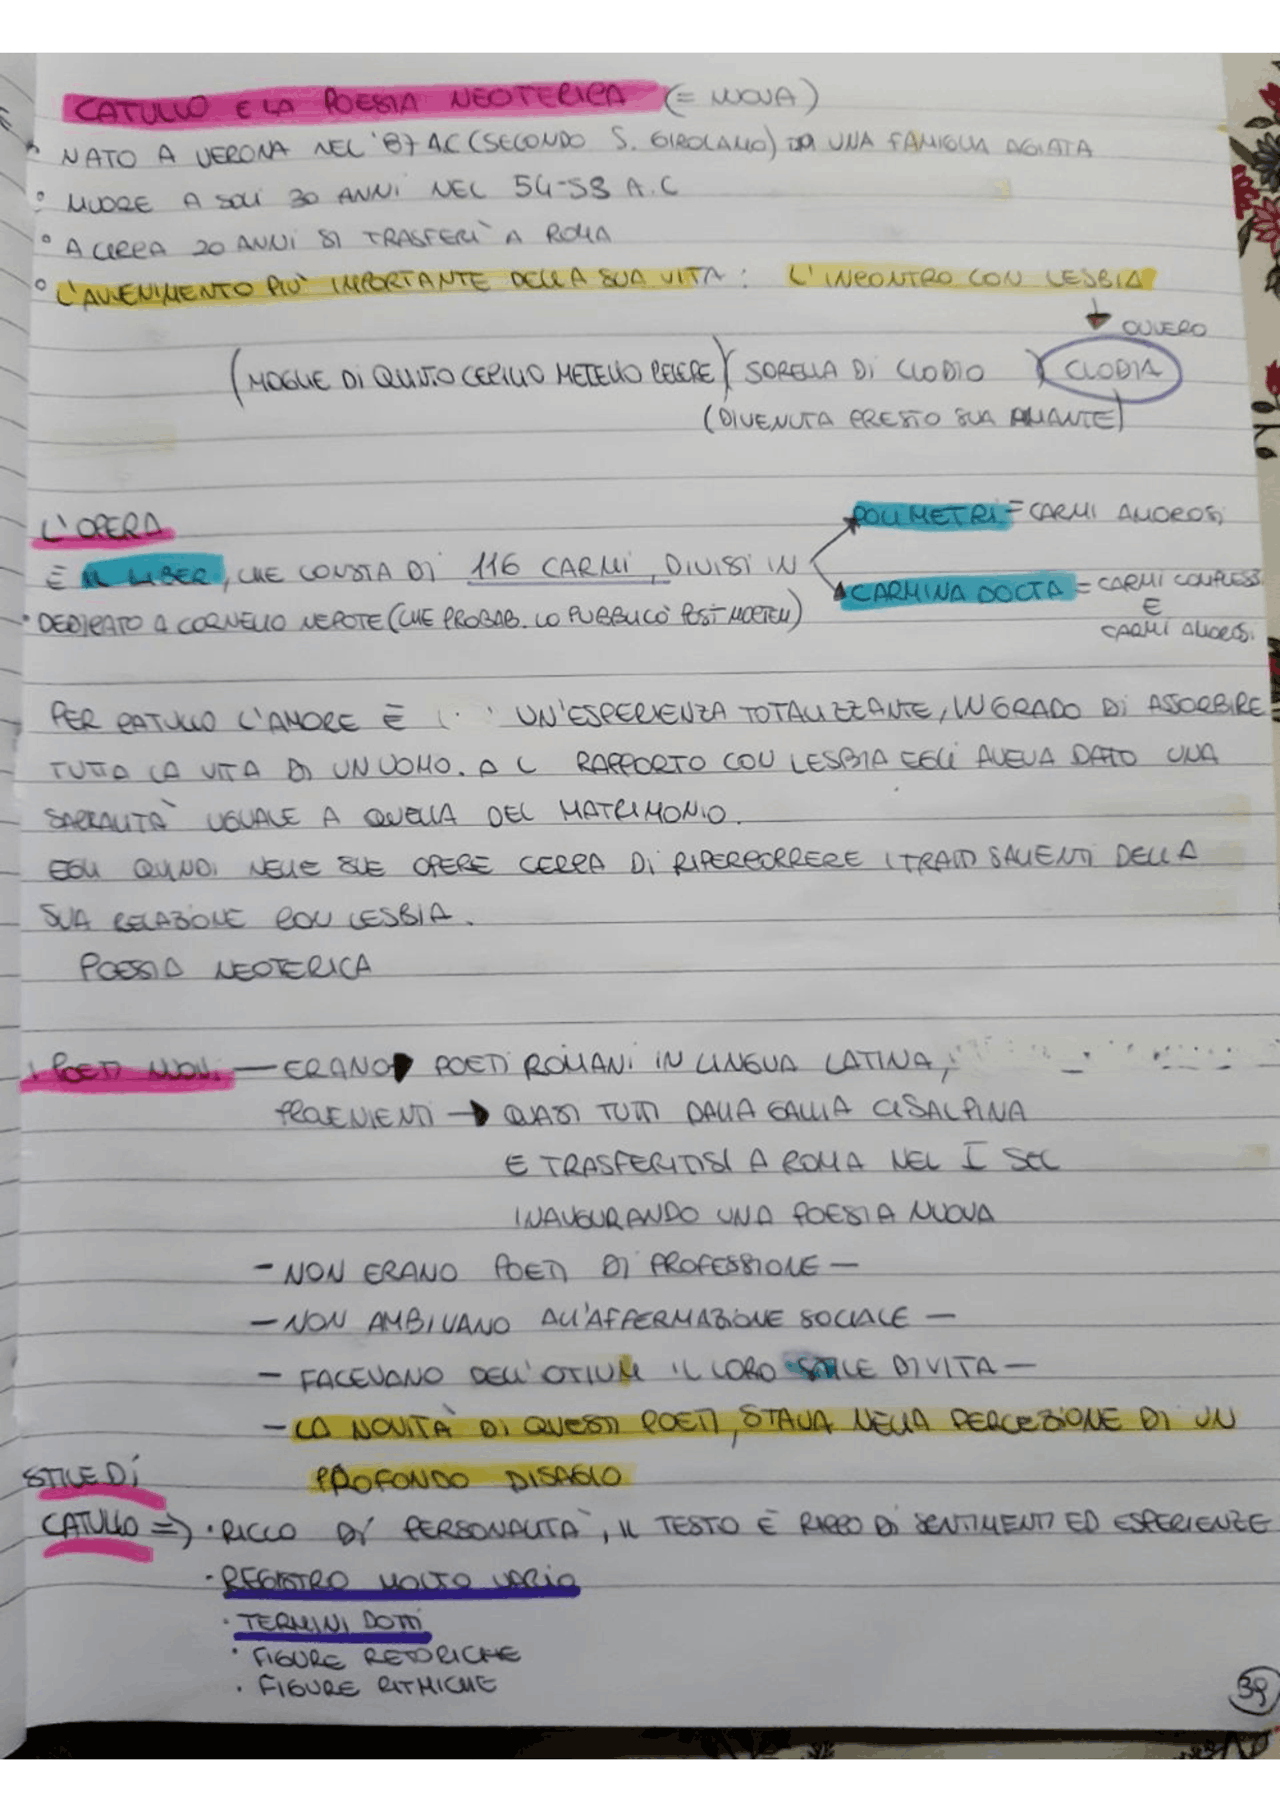 CATULLO E LA POESIA NEOTERICA (= NUOVA)
° NATO A VERONA NEL '87 A.C (SECONDO S. GIROLAMO) DA UNA FAMIGLIA AGIATA
° MUORE A SOLI 30 ANNI NEL 54-53 A.C
° A CIRCA 20 ANNI SI TRASFERÌ A ROMA
° L'AVVENIMENTO PIÙ IMPORTANTE DELLA SUA VITA : L'INCONTRO CON LESBIA
↓ OVVERO
(MOGLIE DI QUINTO CECILIO METELLO CELERE) ( SORELLA DI CLODIO ) CLODIA
(DIVENUTA PRESTO SUA AMANTE)
L'OPERA
POLIMETRI = CARMI AMOROSI
È IL LIBER, CHE CONSTA DI 116 CARMI, DIVISI IN
CARMINA DOCTA = CARMI COMPLESSI
E
CARMI AMOROSI.
· DEDICATO A CORNELIO NEPOTE (CHE PROBAB. LO PUBBLICÒ POST MORTEM)
PER CATULLO L'AMORE È UN'ESPERIENZA TOTALIZZANTE, IN GRADO DI ASSORBIRE
TUTTA LA VITA DI UN UOMO. A L RAPPORTO CON LESBIA EGLI AVEVA DATO UNA
SACRALITÀ UGUALE A QUELLA DEL MATRIMONIO.
EGLI QUINDI NELLE SUE OPERE CERCA DI RIPERCORRERE I TRATTI SALIENTI DELLA
SUA RELAZIONE CON LESBIA.
POESIA NEOTERICA
I POETI NUOVI — ERANO POETI ROMANI IN LINGUA LATINA,
PROVENIENTI → QUASI TUTTI DALLA GALLIA CISALPINA
E TRASFERITISI A ROMA NEL I SEC
INAUGURANDO UNA POESIA NUOVA
- NON ERANO POETI DI PROFESSIONE —
- NON AMBIVANO ALL'AFFERMAZIONE SOCIALE —
- FACEVANO DELL'OTIUM IL LORO STILE DI VITA —
- LA NOVITÀ DI QUESTI POETI, STAVA NELLA PERCEZIONE DI UN
PROFONDO DISAGIO
STILE DI
CATULLO => · RICCO DI PERSONALITÀ, IL TESTO È RICCO DI SENTIMENTI ED ESPERIENZE
· REGISTRO MOLTO VARIO
· TERMINI DOTTI
· FIGURE RETORICHE
· FIGURE RITMICHE
39